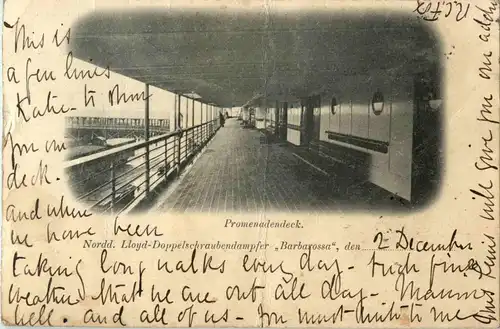 This is
a few lines
Katie - to show
you on
deck.
and where
we have been
Promenadendeck.
Nordd. Lloyd-Doppelschraubendampfer „Barbarossa“, den 2 December
taking long walks every day - Such fine
weather that we are out all day - Mamie
well. and all of us - You must write to me
this will give you our address
R.C. Fox